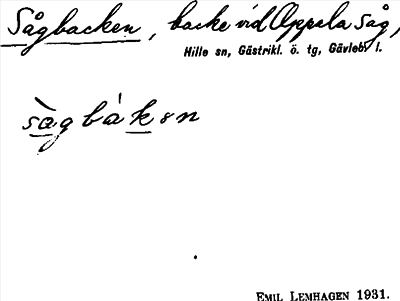 Sågbacken, backe vid Oppala såg,
Hille sn, Gästrikl. ö. tg, Gävleb. l.
sàgbákən
EMIL LEMHAGEN 1931.